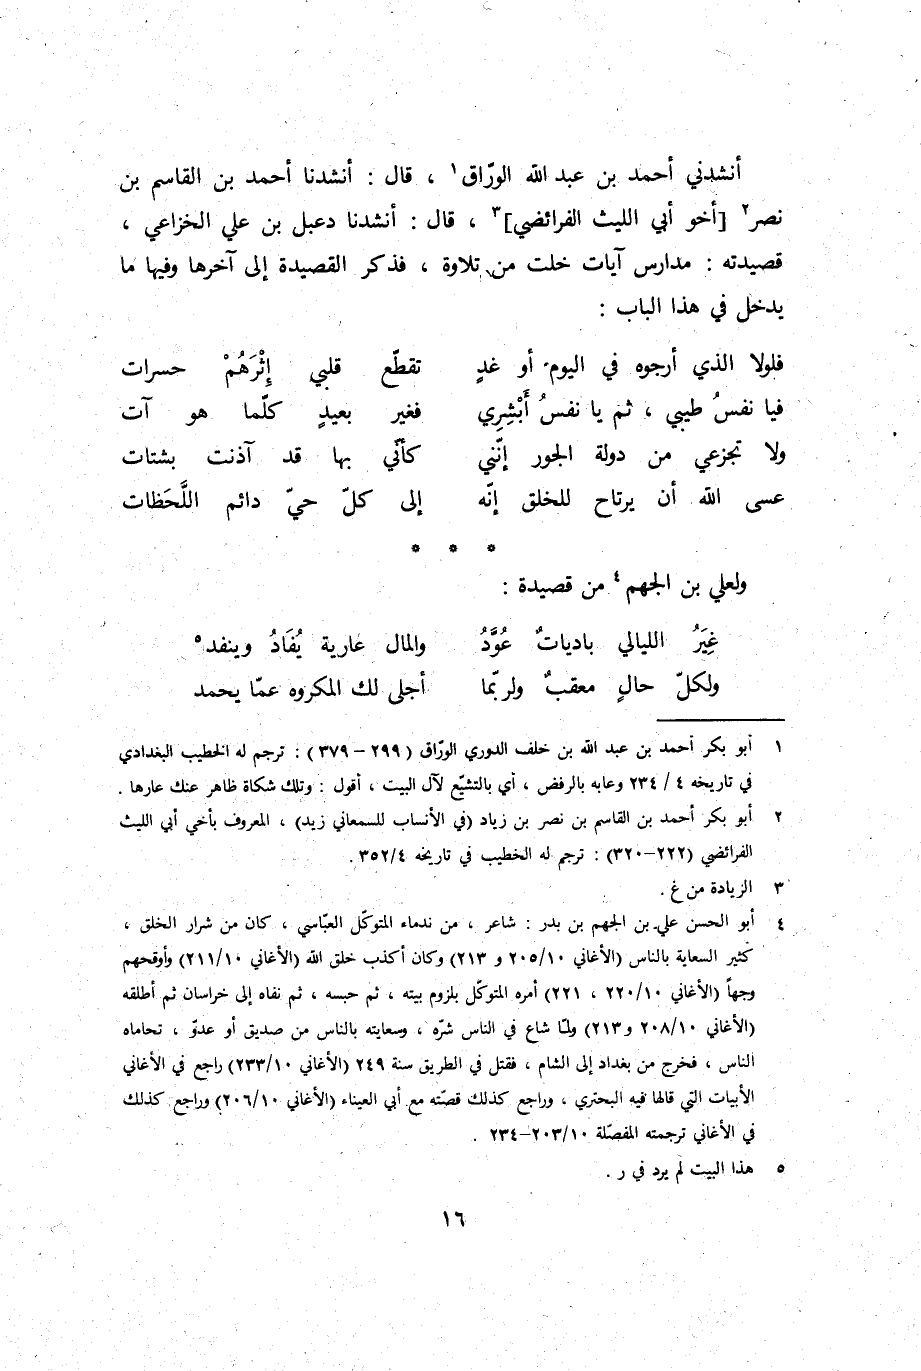 أنشدني أحمد بن عبد الله الورّاق١ ، قال : أنشدنا أحمد بن القاسم بن
نصر٢ [أخو أبي الليث الفرائضي]٣ ، قال : أنشدنا دعبل بن علي الخزاعي ،
قصيدته : مدارس آيات خلت من تلاوة ، فذكر القصيدة إلى آخرها وفيها ما
يدخل في هذا الباب :
فلولا الذي أرجوه في اليوم أو غدٍ تقطّع قلبي إِثْرَهُمْ حسرات
فيا نفسُ طيبي ، ثم يا نفسُ أَبْشِرِي فغير بعيدٍ كلّما هو آت
ولا تجزعي من دولة الجور إنّني كأنّي بها قد آذنت بشتات
عسى الله أن يرتاح للخلق إنّه إلى كلّ حيّ دائم اللَّحَظات
* * *
ولعلي بن الجهم٤ من قصيدة :
غِيَرُ الليالي بادياتٌ عُوَّدُ والمال عارية يُفَادُ وينفد٥
ولكلّ حالٍ معقبٌ ولربّما أجلى لك المكروه عمّا يحمد
١ أبو بكر أحمد بن عبد الله بن خلف الدوري الورّاق (٢٩٩ – ٣٧٩) : ترجم له الخطيب البغدادي
في تاريخه ٤ / ٢٣٤ وعابه بالرفض ، أي بالتشيّع لآل البيت ، أقول : وتلك شكاة ظاهر عنك عارها .
٢ أبو بكر أحمد بن القاسم بن نصر بن زياد (في الأنساب للسمعاني زيد) ، المعروف بأخي أبي الليث
الفرائضي (٢٢٢–٣٢٠) : ترجم له الخطيب في تاريخه ٣٥٢/٤ .
٣ الزيادة من غ .
٤ أبو الحسن علي بن الجهم بن بدر : شاعر ، من ندماء المتوكّل العبّاسي ، كان من شرار الخلق ،
كثير السعاية بالناس (الأغاني ٢٠٥/١٠ و ٢١٣) وكان أكذب خلق الله (الأغاني ٢١١/١٠) وأوقحهم
وجهاً (الأغاني ٢٢٠/١٠ ، ٢٢١) أمره المتوكّل بلزوم بيته ، ثم حبسه ، ثم نفاه إلى خراسان ثم أطلقه
(الأغاني ٢٠٨/١٠ و٢١٣) ولمّا شاع في الناس شرّه ، وسعايته بالناس من صديق أو عدوّ ، تحاماه
الناس ، فخرج من بغداد إلى الشام ، فقتل في الطريق سنة ٢٤٩ (الأغاني ٢٣٣/١٠) راجع في الأغاني
الأبيات التي قالها فيه البحتري ، وراجع كذلك قصّته مع أبي العيناء (الأغاني ٢٠٦/١٠) وراجع كذلك
في الأغاني ترجمته المفصّلة ٢٠٣/١٠–٢٣٤ .
٥ هذا البيت لم يرد في ر .
١٦